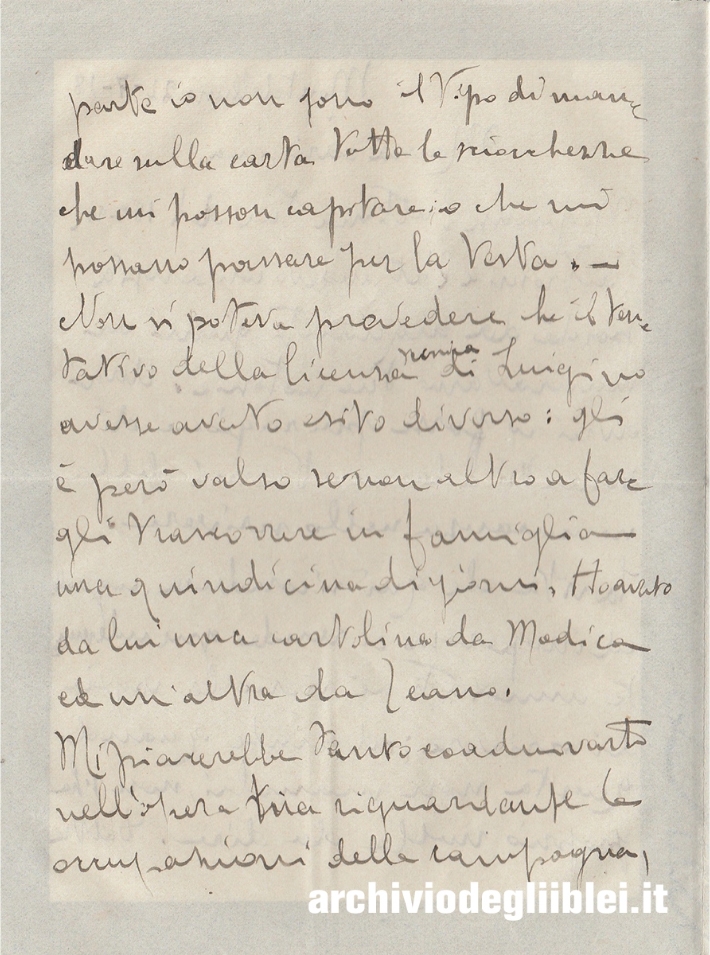 parte io non sono il tipo di man-
dare sulla carta tutte le sciocchezze
che mi posson capitare o che mi
possano passare per la testa. —
Non si poteva provedere che il ten-
tativo della licenza di Luigino
avesse avuto esito diverso: gli
è però valso se non altro a far-
gli trascorrere in famiglia
una quindicina di giorni. Ho avuto
da lui una cartolina da Modica
ed un'altra da
Mi piacerebbe tanto coadiuvarti
nell'opera tua riguardante le
occupazioni della campagna,
archiviodegliiblei.it